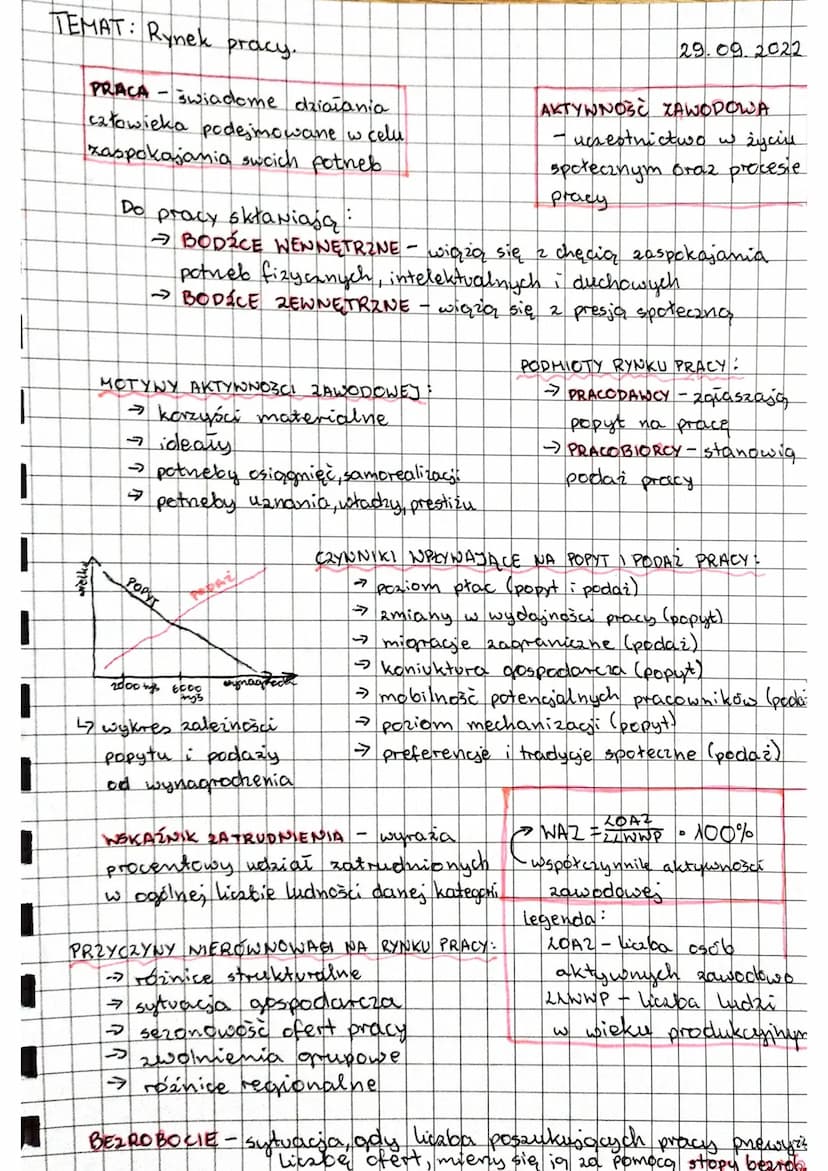 TEMAT: Rynek pracy.
29.09.2022
PRACA – świadome działania
człowieka podejmowane w celu
zaspokajania swoich potrzeb
AKTYWNOŚĆ ZAWODOWA
– uczestnictwo w życiu
społecznym oraz procesie
pracy
Do pracy skłaniają:
→ BODŹCE WEWNĘTRZNE – wiążą się z chęcią zaspokajania
potrzeb fizycznych, intelektualnych i duchowych
→ BODŹCE ZEWNĘTRZNE – wiążą się z presją społeczną
MOTYWY AKTYWNOŚCI ZAWODOWEJ:
→ korzyści materialne
→ ideały
→ potrzeby osiągnięć, samorealizacji
→ potrzeby uznania, władzy, prestiżu
PODMIOTY RYNKU PRACY:
→ PRACODAWCY – zgłaszają
popyt na pracę
→ PRACOBIORCY – stanowią
podaż pracy
CZYNNIKI WPŁYWAJĄCE NA POPYT I PODAŻ PRACY:
→ poziom płac (popyt i podaż)
→ zmiany w wydajności pracy (popyt)
→ migracje zagraniczne (podaż)
→ koniuktura gospodarcza (popyt)
→ mobilność potencjalnych pracowników (poda
→ poziom mechanizacji (popyt)
→ preferencje i tradycje społeczne (podaż)
POPYT
PODAŻ
2000 zł
6000
wynagrodz
↳ wykres zależności
popytu i podaży
od wynagrodzenia
WSKAŹNIK ZATRUDNIENIA – wyraża
procentowy udział zatrudnionych
w ogólnej liczbie ludności danej kategorii
→ WAZ = LOAZ / LLWWP • 100%
współczynnik aktywności
zawodowej
Legenda:
LOAZ – liczba osób
aktywnych zawodowo
LLWWP – liczba ludzi
w wieku produkcyjnym
PRZYCZYNY NIERÓWNOWAGI NA RYNKU PRACY:
→ różnice strukturalne
→ sytuacja gospodarcza
→ sezonowość ofert pracy
→ zwolnienia grupowe
→ różnice regionalne
BEZROBOCIE – sytuacja, gdy liczba poszukujących pracy przewyż
liczbę ofert, mierzy się ją za pomocą stopy bezrob